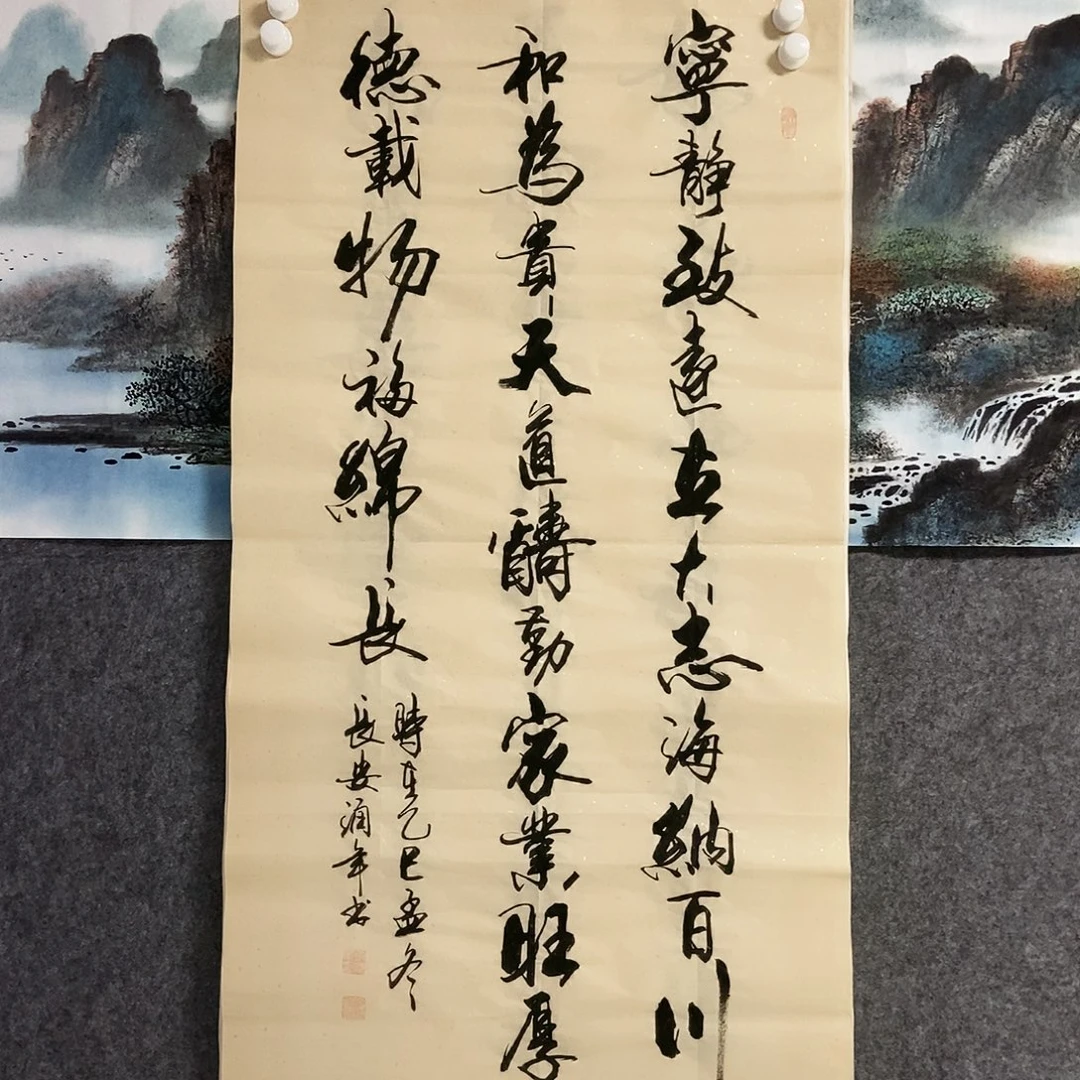 寧靜致遠立大志海納百川
和為貴天道酬勤家業旺厚
德載物福綿長
時在乙巳孟冬
長安涌年书